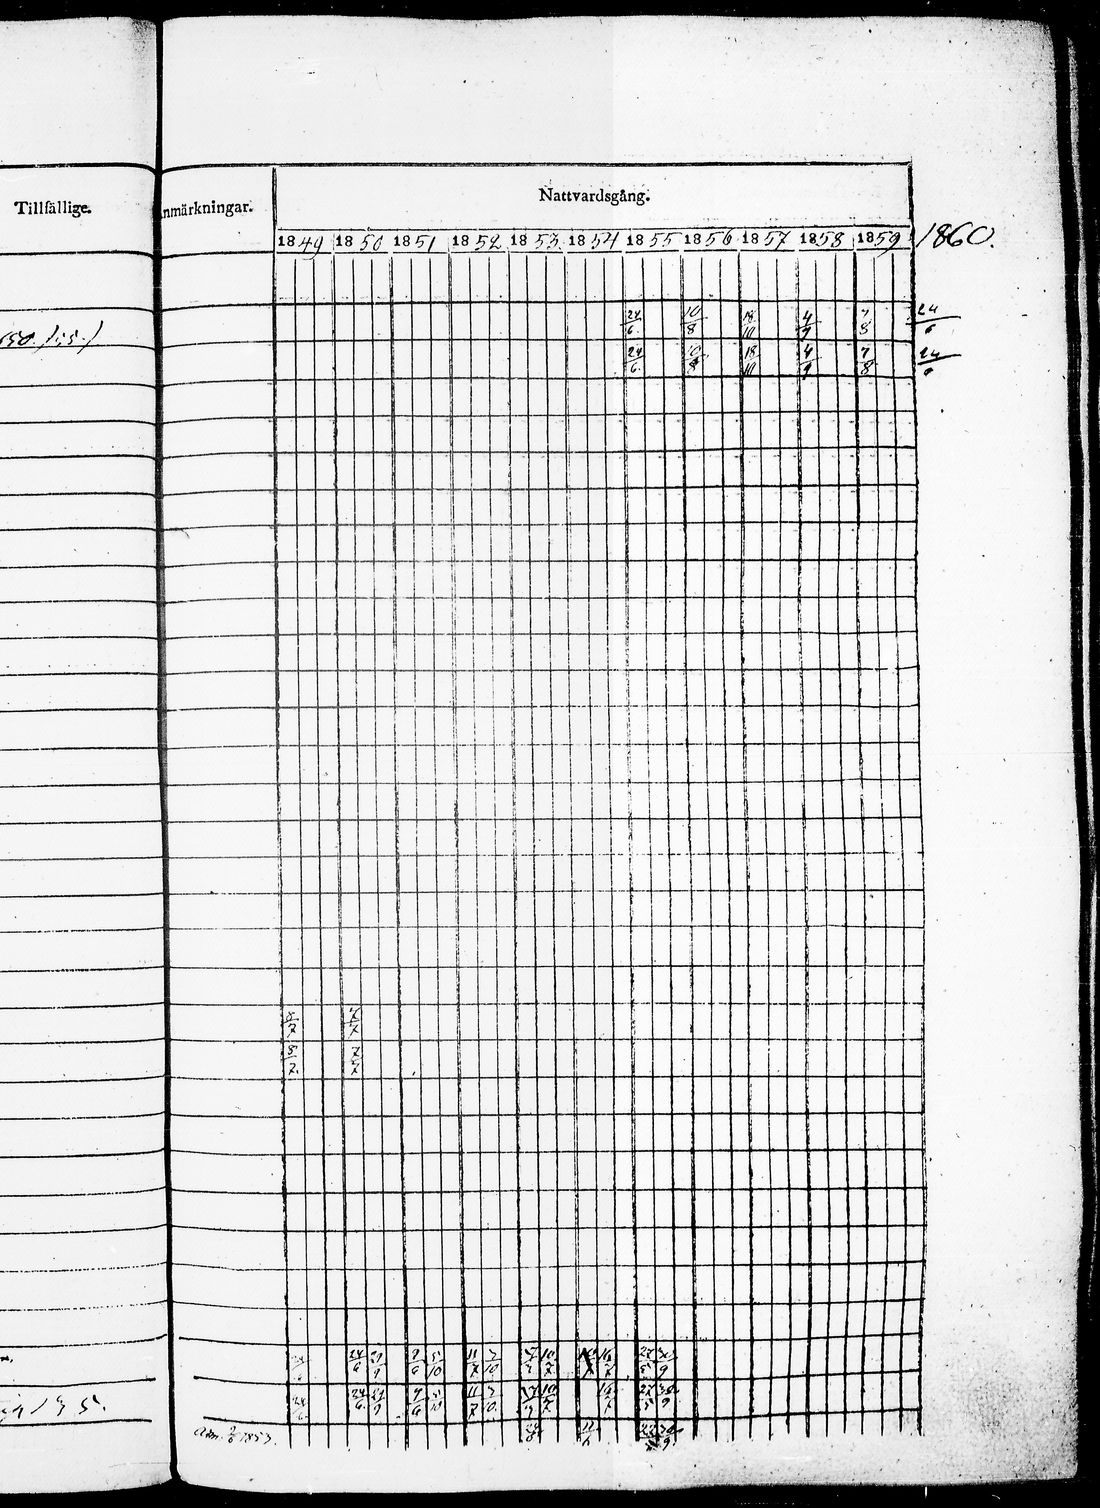 Tillfällige.
nmärkningar.
Nattvardsgång.
1849 1850 1851 1852 1853 1854 1855 1856 1857 1858 1859 1860.
24/6 10/8 18/10 4/9 7/8 24/6
24/6 10/8 18/10 4/9 7/8 24/6
8/7 7/7
8/7 7/7
24/6 24/6 29/9 9/6 5/10 11/7 3/10 10/7 16/7 27/5 30/9
24/6 24/6 29/9 9/6 5/10 11/7 3/10 10/7 16/7 27/5 30/9
Adm. 1853.